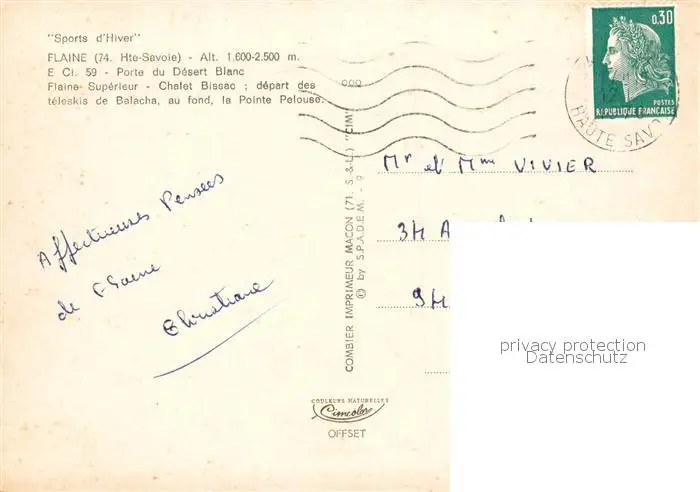 "Sports d'Hiver"
FLAINE (74. Hte-Savoie) - Alt. 1.600-2.500 m.
E CI. 59 - Porte du Désert Blanc
Flaine-Supérieur - Chalet Bissac ; départ des
téleskis de Balacha, au fond, la Pointe Pelouse.
Affectueuses Pensées
de Flaine
Christiane
COMBIER IMPRIMEUR MACON (71. S.-&-L.) "CIM"
© by S.P.A.D.E.M. - 9
COULEURS NATURELLES
Cimcolor
OFFSET
0,30
POSTES
REPUBLIQUE FRANÇAISE
12
HAUTE SAVO
Mr et Mme VIVIER
34 A
94
privacy protection
Datenschutz